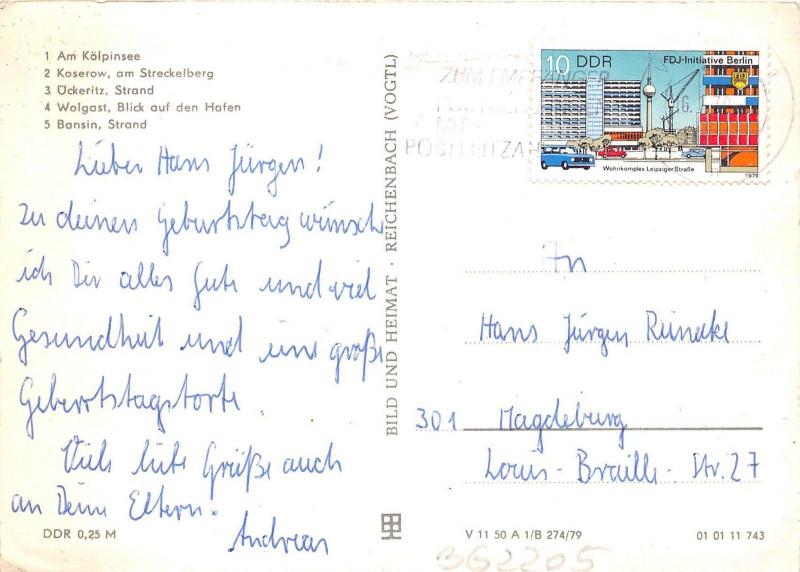 1 Am Kölpinsee
2 Koserow, am Streckelberg
3 Ückeritz, Strand
4 Wolgast, Blick auf den Hafen
5 Bansin, Strand
Lieber Hans Jürgen!
Zu deinen Geburtstag wünsche
ich Dir alles Gute und viel
Gesundheit und eine große
Geburtstagstorte.
Viele liebe Grüße auch
an Deine Eltern.
Andreas
DDR 0,25 M
BILD UND HEIMAT · REICHENBACH (VOGTL)
ZUM EMPFÄNGER
MIT
POSTLEITZA
10 DDR
FDJ-Initiative Berlin
Wohnkomplex Leipziger Straße
1979
An
Hans Jürgen Reinecke
301 Magdeburg
Louis-Braille-Str. 27
V 11 50 A 1/B 274/79
01 01 11 743
362205